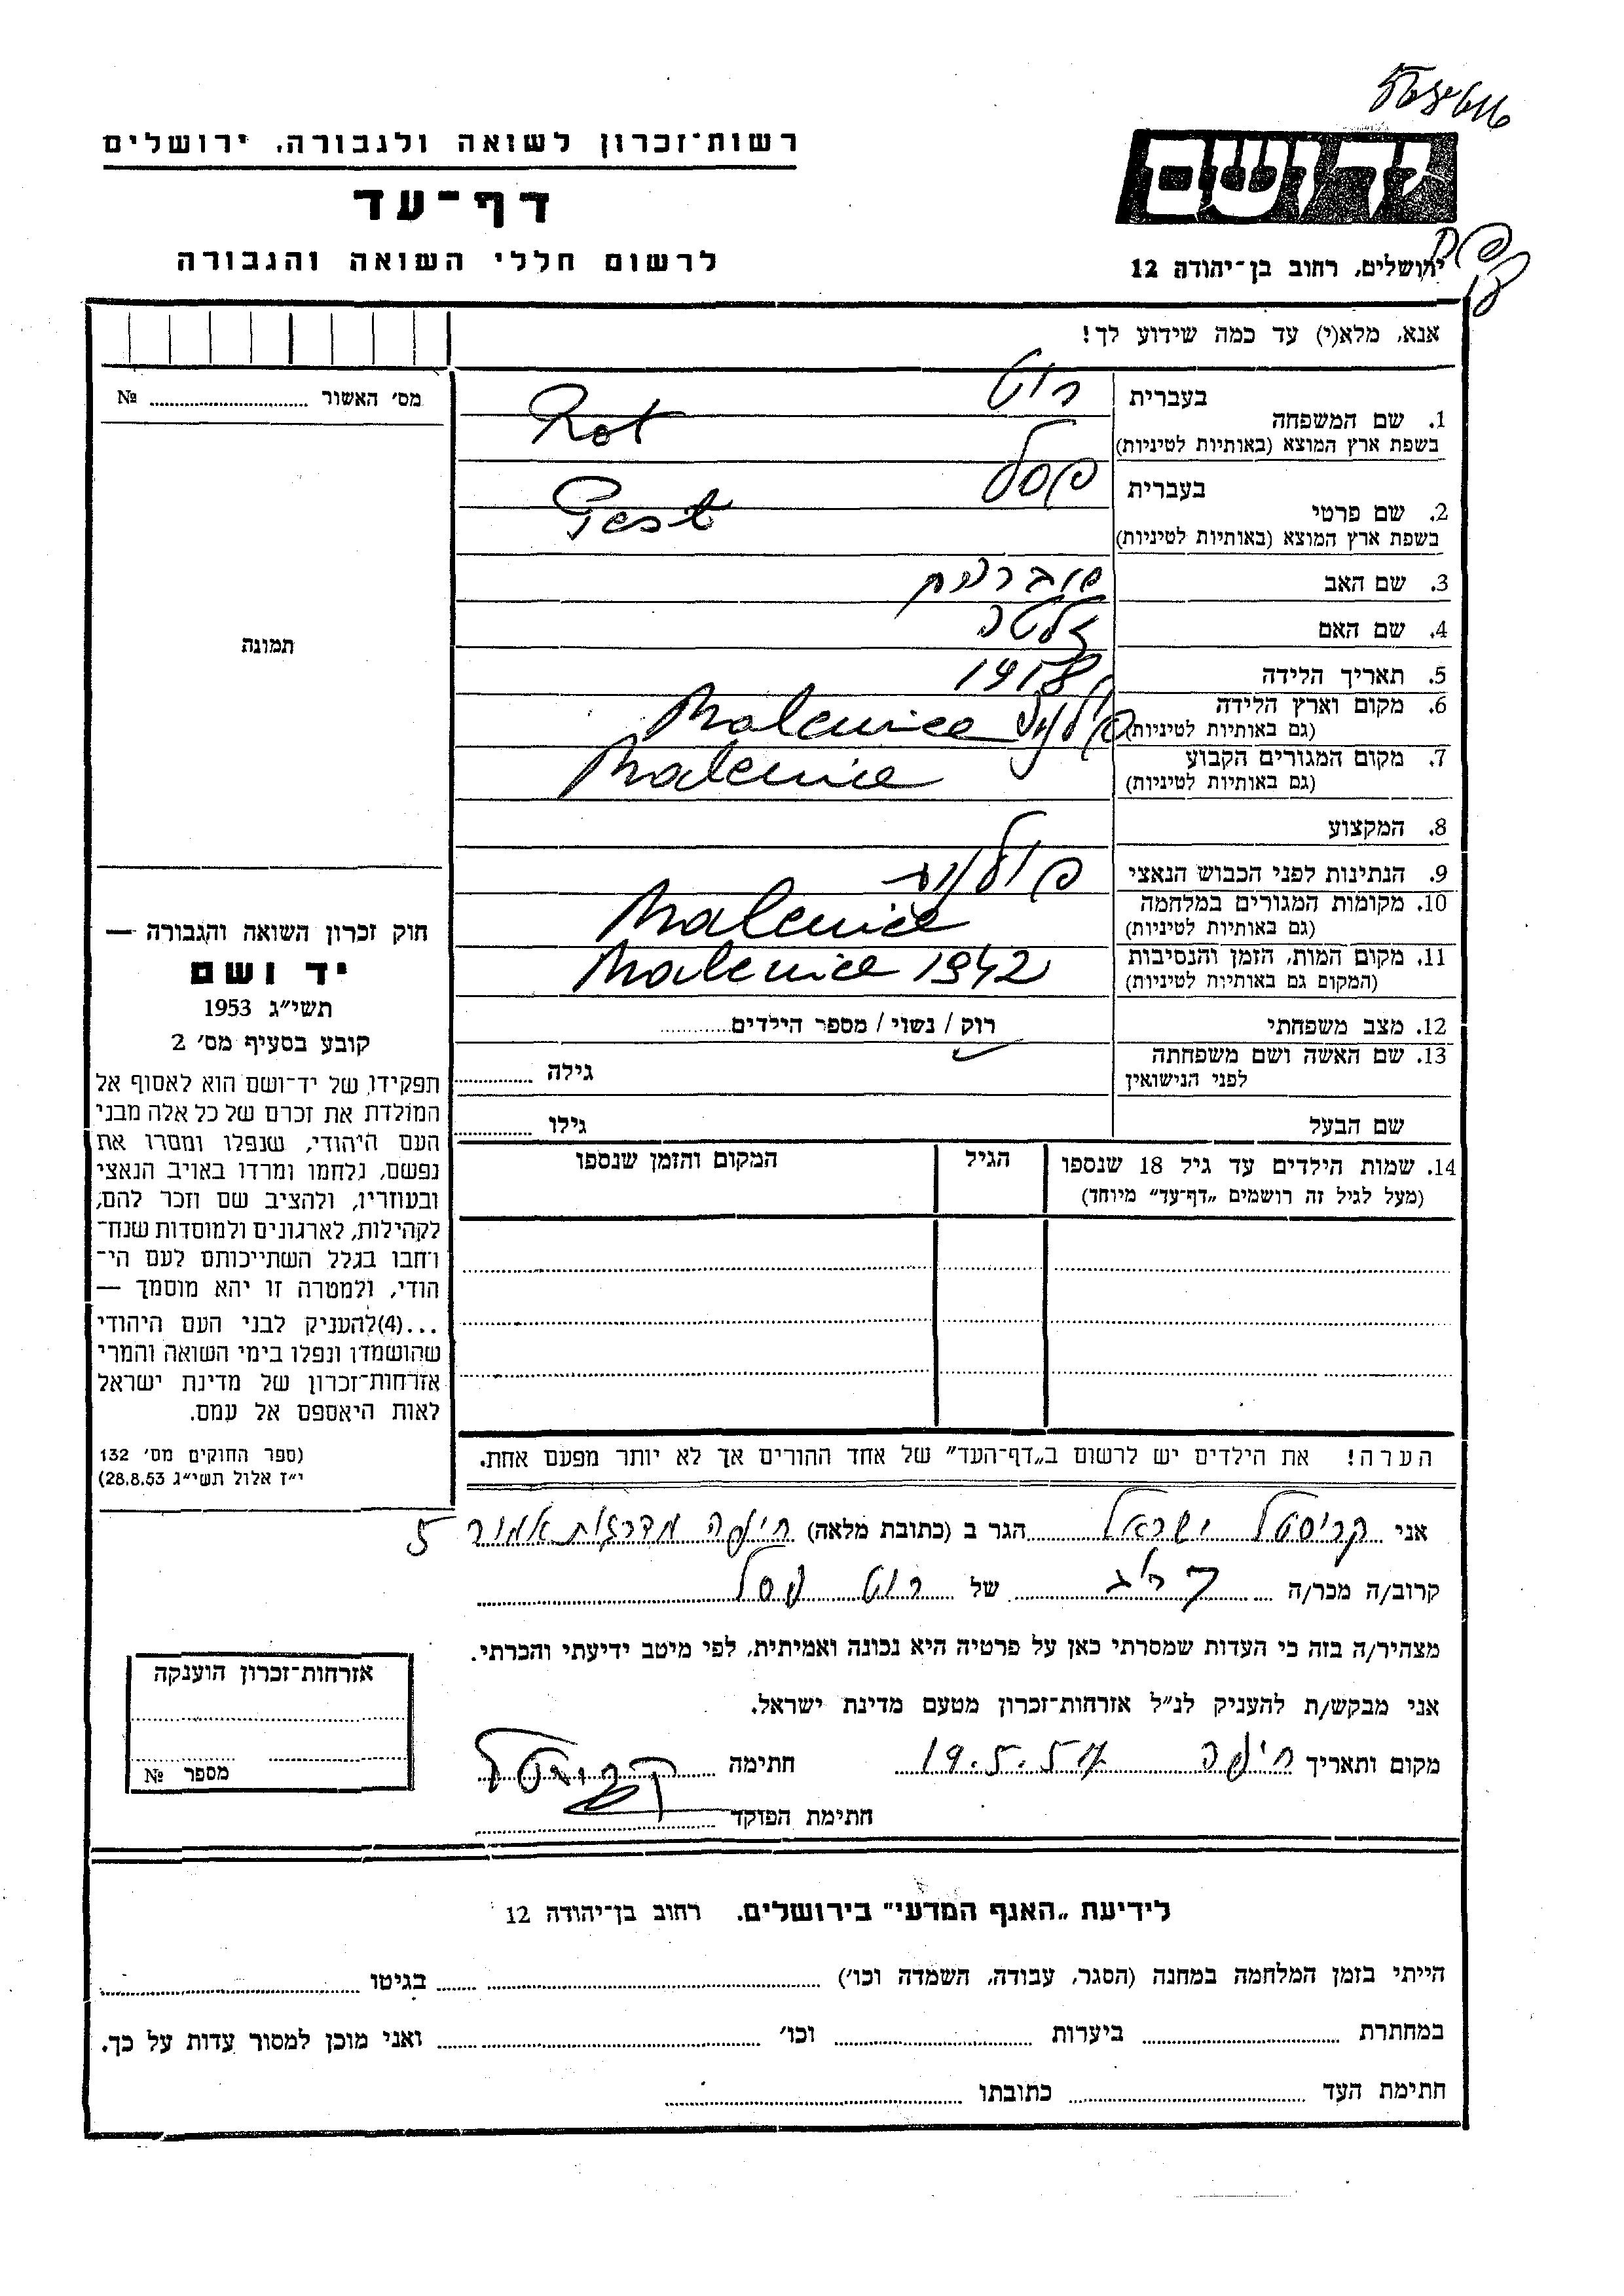 רשות־זכרון לשואה ולגבורה, ירושלים
דף־עד
לרשום חללי השואה והגבורה
יד ושם
ירושלים, רחוב בן־יהודה 12
אנא, מלא(י) עד כמה שידוע לך!
מס׳ האשור № 
תמונה
1. שם המשפחה בעברית רוט
בשפת ארץ המוצא (באותיות לטיניות) Rot
2. שם פרטי בעברית פסל
בשפת ארץ המוצא (באותיות לטיניות) Pesl
3. שם האב
4. שם האם זלטה
5. תאריך הלידה 1918
6. מקום וארץ הלידה
(גם באותיות לטיניות) Malenice
7. מקום המגורים הקבוע
(גם באותיות לטיניות) Malenice
8. המקצוע
9. הנתינות לפני הכבוש הנאצי פולנית
10. מקומות המגורים במלחמה
(גם באותיות לטיניות) Malenice
11. מקום המות, הזמן והנסיבות
(המקום גם באותיות לטיניות) Malenice 1942
12. מצב משפחתי רוק / נשוי / מספר הילדים
13. שם האשה ושם משפחתה
לפני הנישואין גילה
שם הבעל גילו
14. שמות הילדים עד גיל 18 שנספו הגיל המקום והזמן שנספו
(מעל לגיל זה רושמים „דף־עד” מיוחד)
הערה! את הילדים יש לרשום ב„דף־העד” של אחד ההורים אך לא יותר מפעם אחת.
חוק זכרון השואה והגבורה —
יד ושם
תשי״ג 1953
קובע בסעיף מס׳ 2
תפקידו של יד־ושם הוא לאסוף אל
המולדת את זכרם של כל אלה מבני
העם היהודי, שנפלו ומסרו את
נפשם, נלחמו ומרדו באויב הנאצי
ובעוזריו, ולהציב שם וזכר להם,
לקהילות, לארגונים ולמוסדות שנח־
רחבו בגלל השתייכותם לעם הי־
הודי, ולמטרה זו יהא מוסמך —
...(4)להעניק לבני העם היהודי
שהושמדו ונפלו בימי השואה והמרי
אזרחות־זכרון של מדינת ישראל
לאות היאספם אל עמם.
(ספר החוקים מס׳ 132
י״ז אלול תשי״ג 28.8.53)
אני קריסטל ישראל הגר ב (כתובת מלאה) חיפה מדרגות אמור 5
קרוב/ה מכר/ה של רוט פסל
מצהיר/ה בזה כי העדות שמסרתי כאן על פרטיה היא נכונה ואמיתית, לפי מיטב ידיעתי והכרתי.
אני מבקש/ת להעניק לנ״ל אזרחות־זכרון מטעם מדינת ישראל.
מקום ותאריך חיפה 19.5.57 חתימה קריסטל
חתימת הפוקד
אזרחות־זכרון הוענקה
מספר №
לידיעת „האגף המדעי” בירושלים. רחוב בן־יהודה 12
הייתי בזמן המלחמה במחנה (הסגר, עבודה, השמדה וכו׳) בגיטו
במחתרת ביערות וכו׳ ואני מוכן למסור עדות על כך.
חתימת העד כתובתו